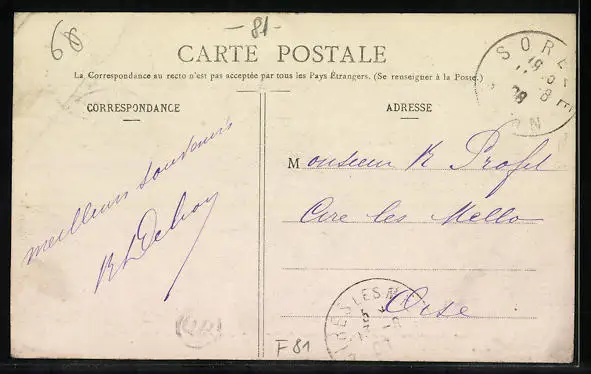 68
- 81 -
CARTE POSTALE
La Correspondance au recto n'est pas acceptée par tous les Pays Étrangers. (Se renseigner à la Poste.)
CORRESPONDANCE
meilleurs souvenirs
ADRESSE
Monsieur R Profit
Cire les Mello
Oise
F 81